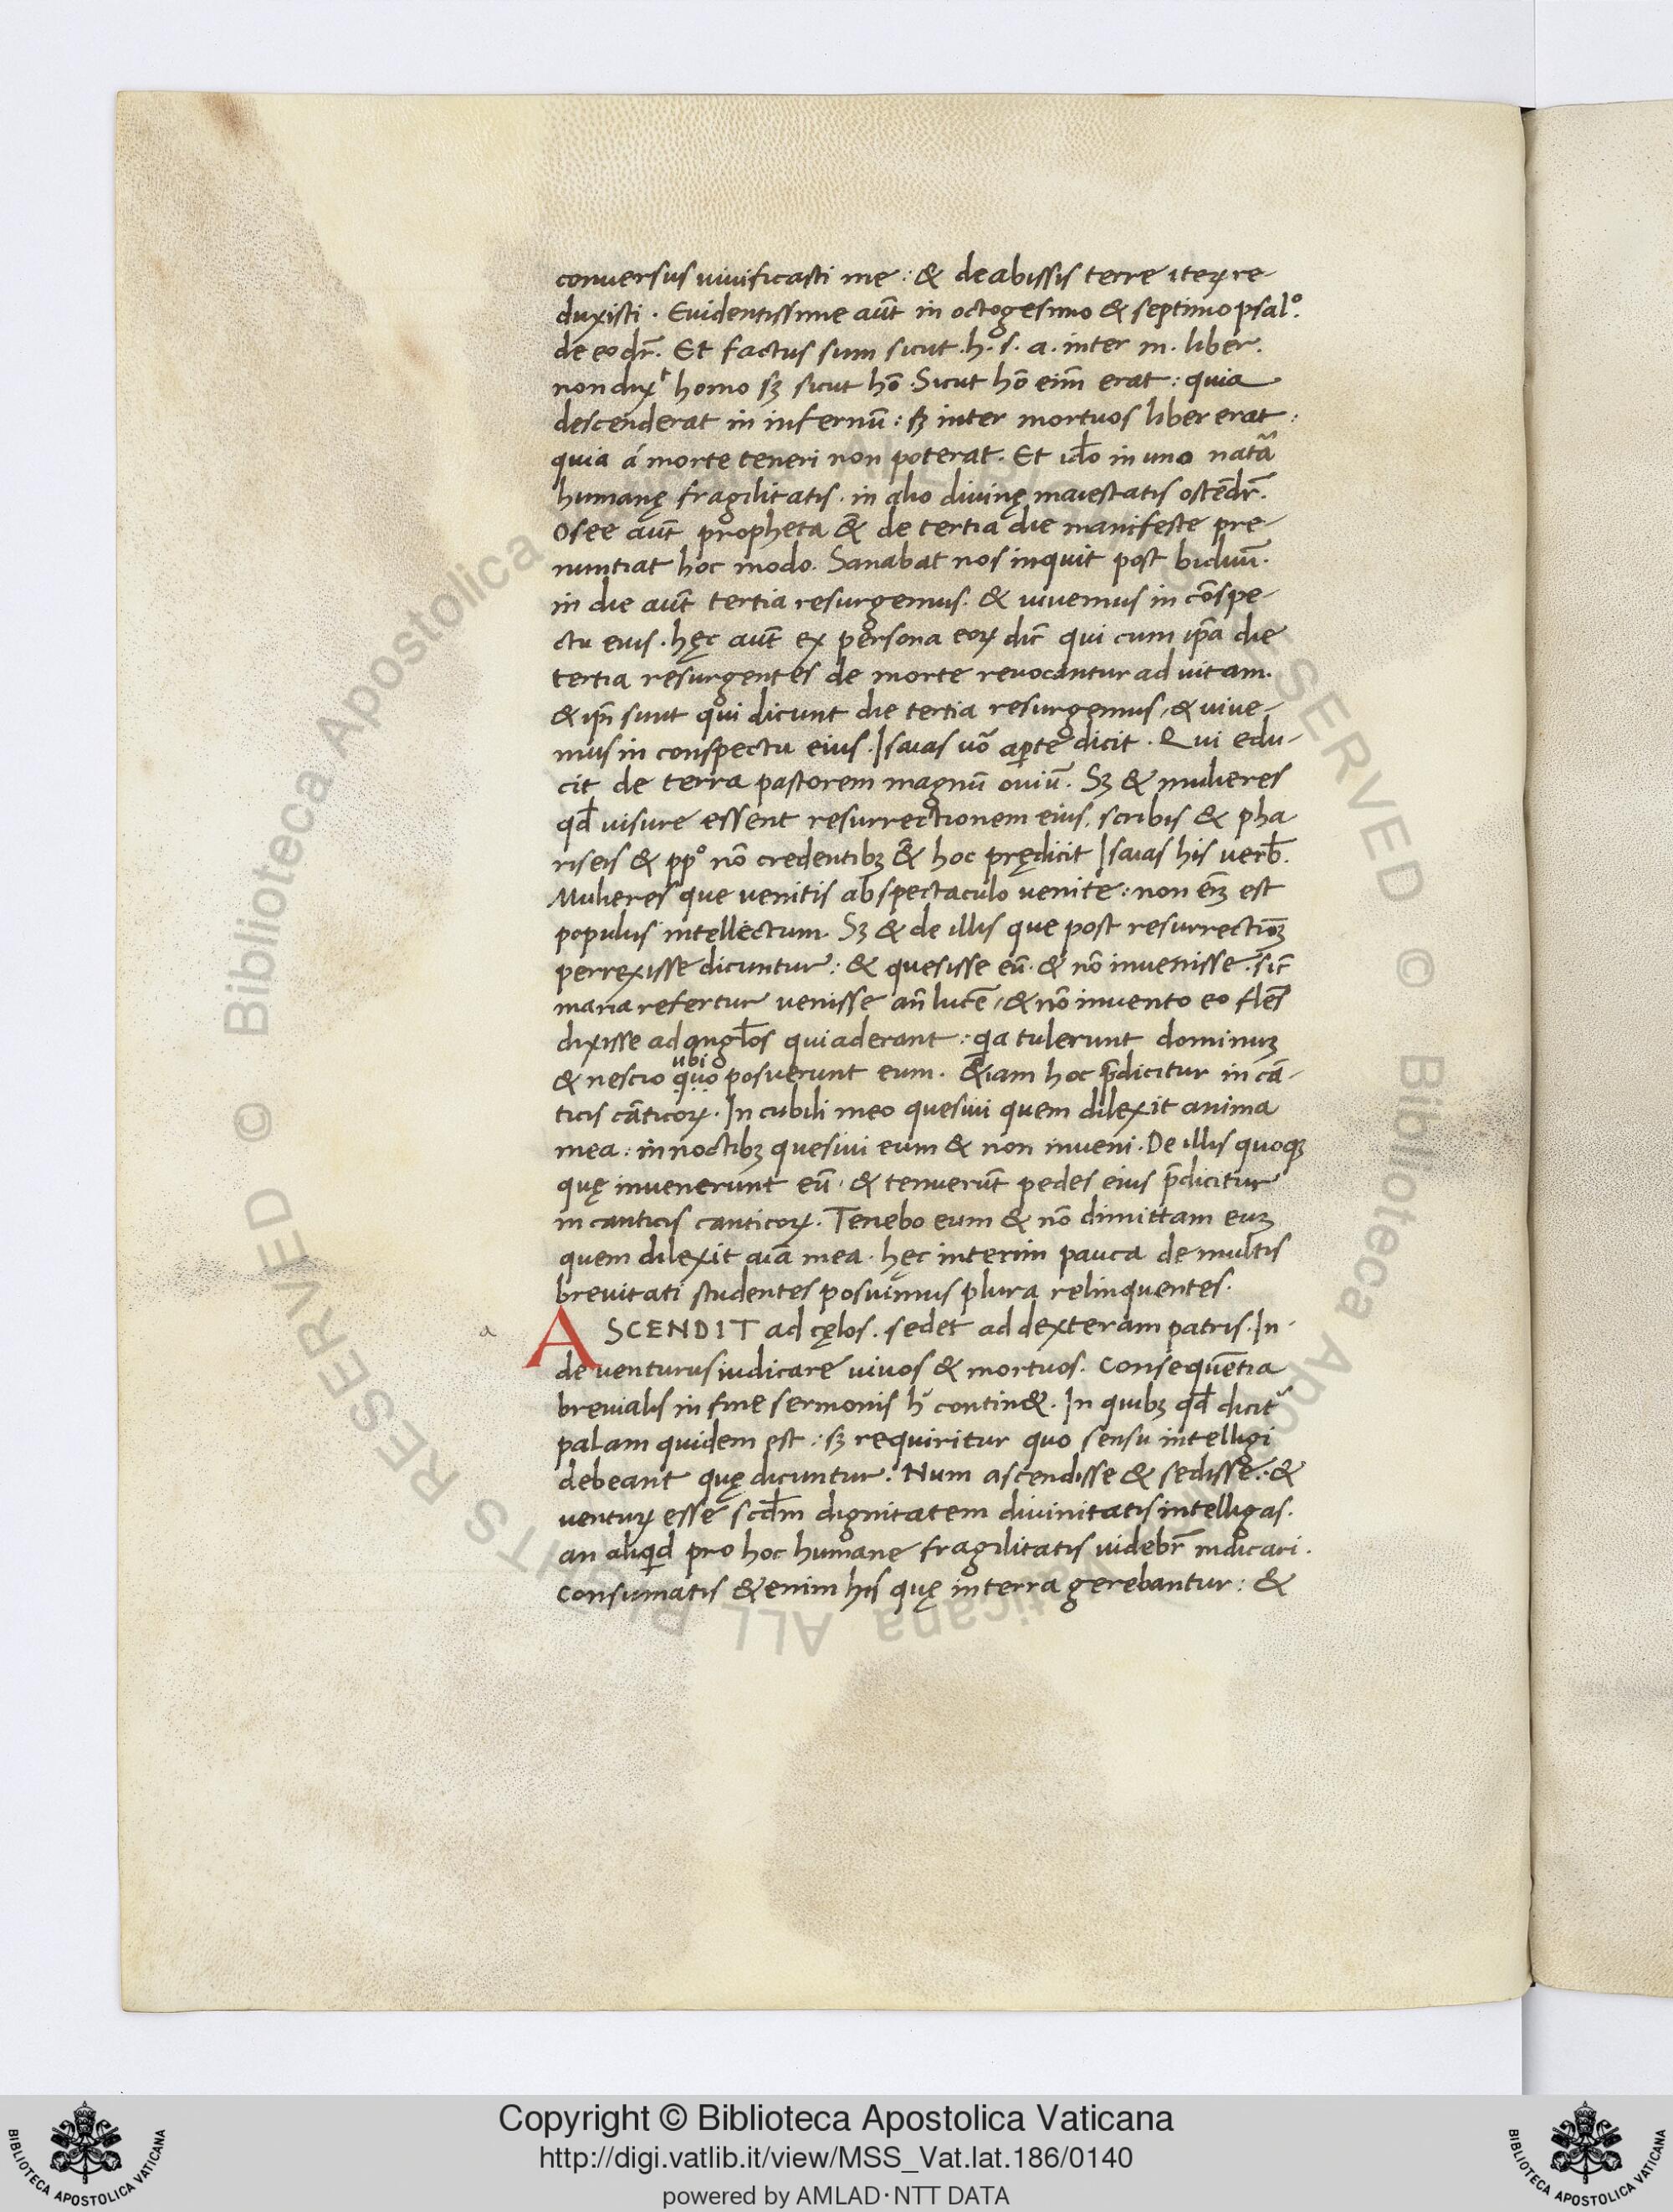 conuersus uiuificasti me: & de abissis terre iteꝝ re-
duxisti. Euidentissime aut̄ in octogesimo & septimo psal°.
de eodr̄. Et factus sum sicut .h. s. a. inter m. liber.
non dixᵗ homo sꝫ sicut hō. Sicut hō eim̄ erat: quia
descenderat in infernū: sꝫ inter mortuos liber erat:
quia á morte teneri non poterat. Et iđo in uno natā
humanę fragilitatis. in alio diuinę maiestatis ostēdr̄.
Osee aut̄ propheta & de tertia die manifeste pre-
nuntiat hoc modo. Sanabat nos inquit post biduū.
in die aut̄ tertia resurgemus. & uiuemus in cōspe-
ctu eius. hęc aut̄ ex persona eoꝝ dic̄ qui cum ip̄a die
tertia resurgentes de morte reuocantur ad uitam.
& ip̄i sunt qui dicunt die tertia resurgemus, & uiue-
mus in conspectu eius. Isaias uō aperte dicit. Qui edu-
cit de terra pastorem magnū ouiū. Sꝫ & mulieres
qđ uisure essent resurrectionem eius, scribis & pha
riseis & pp°̄ nō credentibꝫ & hoc prędicit Isaias his verb̄.
Mulieres que uenitis ab spectaculo uenite: non em̄ est
populus intellectum. Sꝫ & de illis que post resurrectiōꝫ
perrexisse dicuntur: & quesisse eū. & nō inuenisse. sic̄
maria refertur uenisse an̄ lucē, & nō inuento eo flēs
dixisse ad angłos qui aderant: qa tulerunt dominuꝫ
ubi
& nescio quo posuerunt eum. &iam hoc p̄dicitur in cā-
ticis cāticoꝝ. In cubili meo quesiui quem dilexit anima
mea: in noctibꝫ quesiui eum & non inueni. De illis quoqꝫ
quę inuenerunt eū. & tenuerūt pedes eius p̄dicitur
in canticis canticoꝝ. Tenebo eum & nō dimittam euꝫ
quem dilexit aīa mea. hęc interim pauca de multis
breuitati studentes posuimus plura relinquentes.
a ASCENDIT ad cęlos. sedet ad dexteram patris. In-
de uenturus iudicare uiuos & mortuos. Consequētia
breuialis in fine sermonis h̄ contin&. In quibꝫ qđ dicit̄
palam quidem est: sꝫ requiritur quo sensu intelligi
debeant quę dicuntur. Num ascendisse & sedisse: &
uenturꝝ esse scđm dignitatem diuinitatis intelligas.
an aliqid pro hoc humane fragilitatis uidebr̄ indicari.
Consumatis &enim his quę in terra gerebantur: &
Copyright © Biblioteca Apostolica Vaticana
http://digi.vatlib.it/view/MSS_Vat.lat.186/0140
powered by AMLAD·NTT DATA
BIBLIOTECA APOSTOLICA VATICANA
BIBLIOTECA APOSTOLICA VATICANA